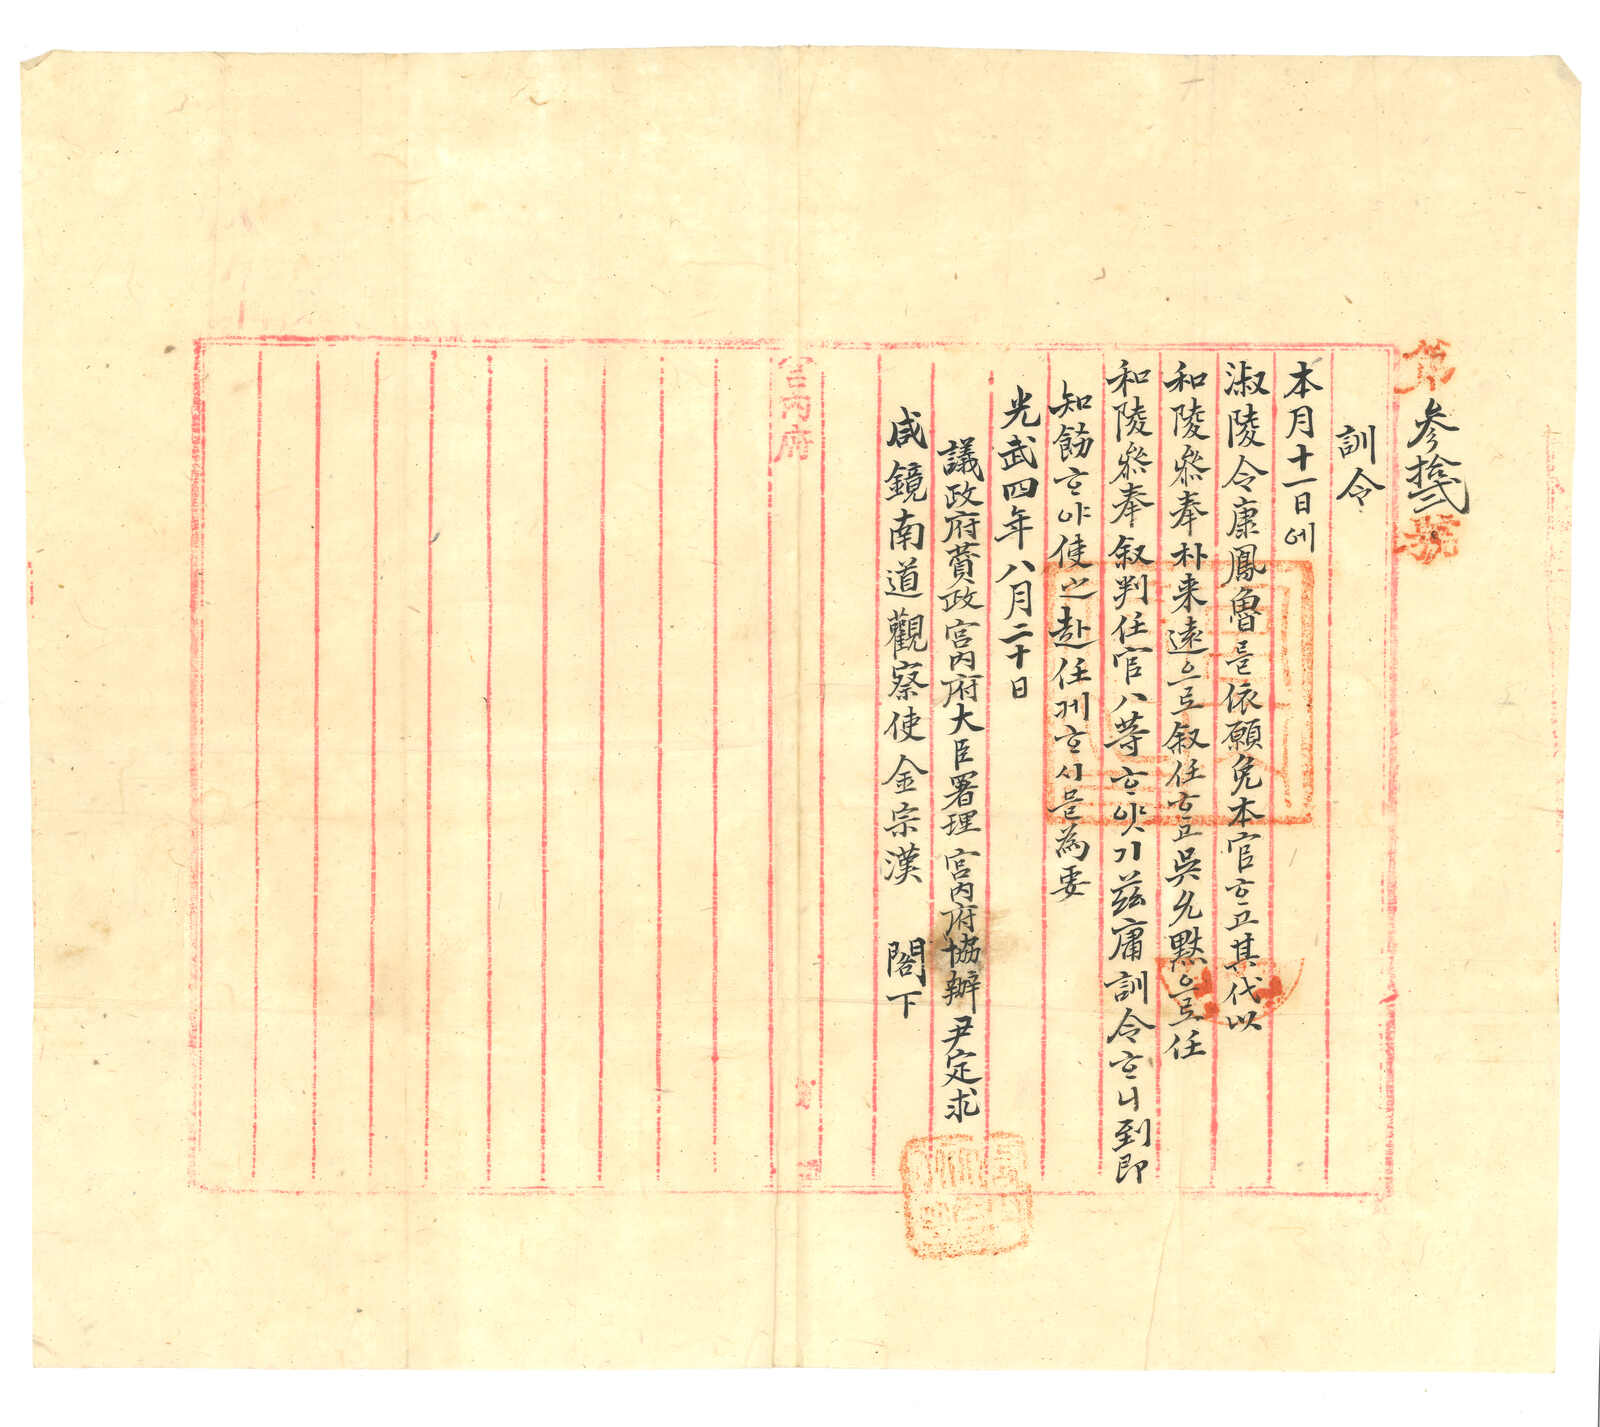 第參拾弍號
訓令
本月十一日에
淑陵令康鳳魯를依願免本官ᄒᆞ고其代以
和陵叅奉朴来遠으로叙任ᄒᆞ고吳允黙으로任
和陵叅奉叙判任官八等ᄒᆞ얏기玆庸訓令ᄒᆞ니到即
知飭ᄒᆞ야使之赴任케ᄒᆞ시믈為要
光武四年八月二十日
議政府贊政宮內府大臣署理宮內府協辦尹定求
咸鏡南道觀察使金宗漢 閣下
宮內府